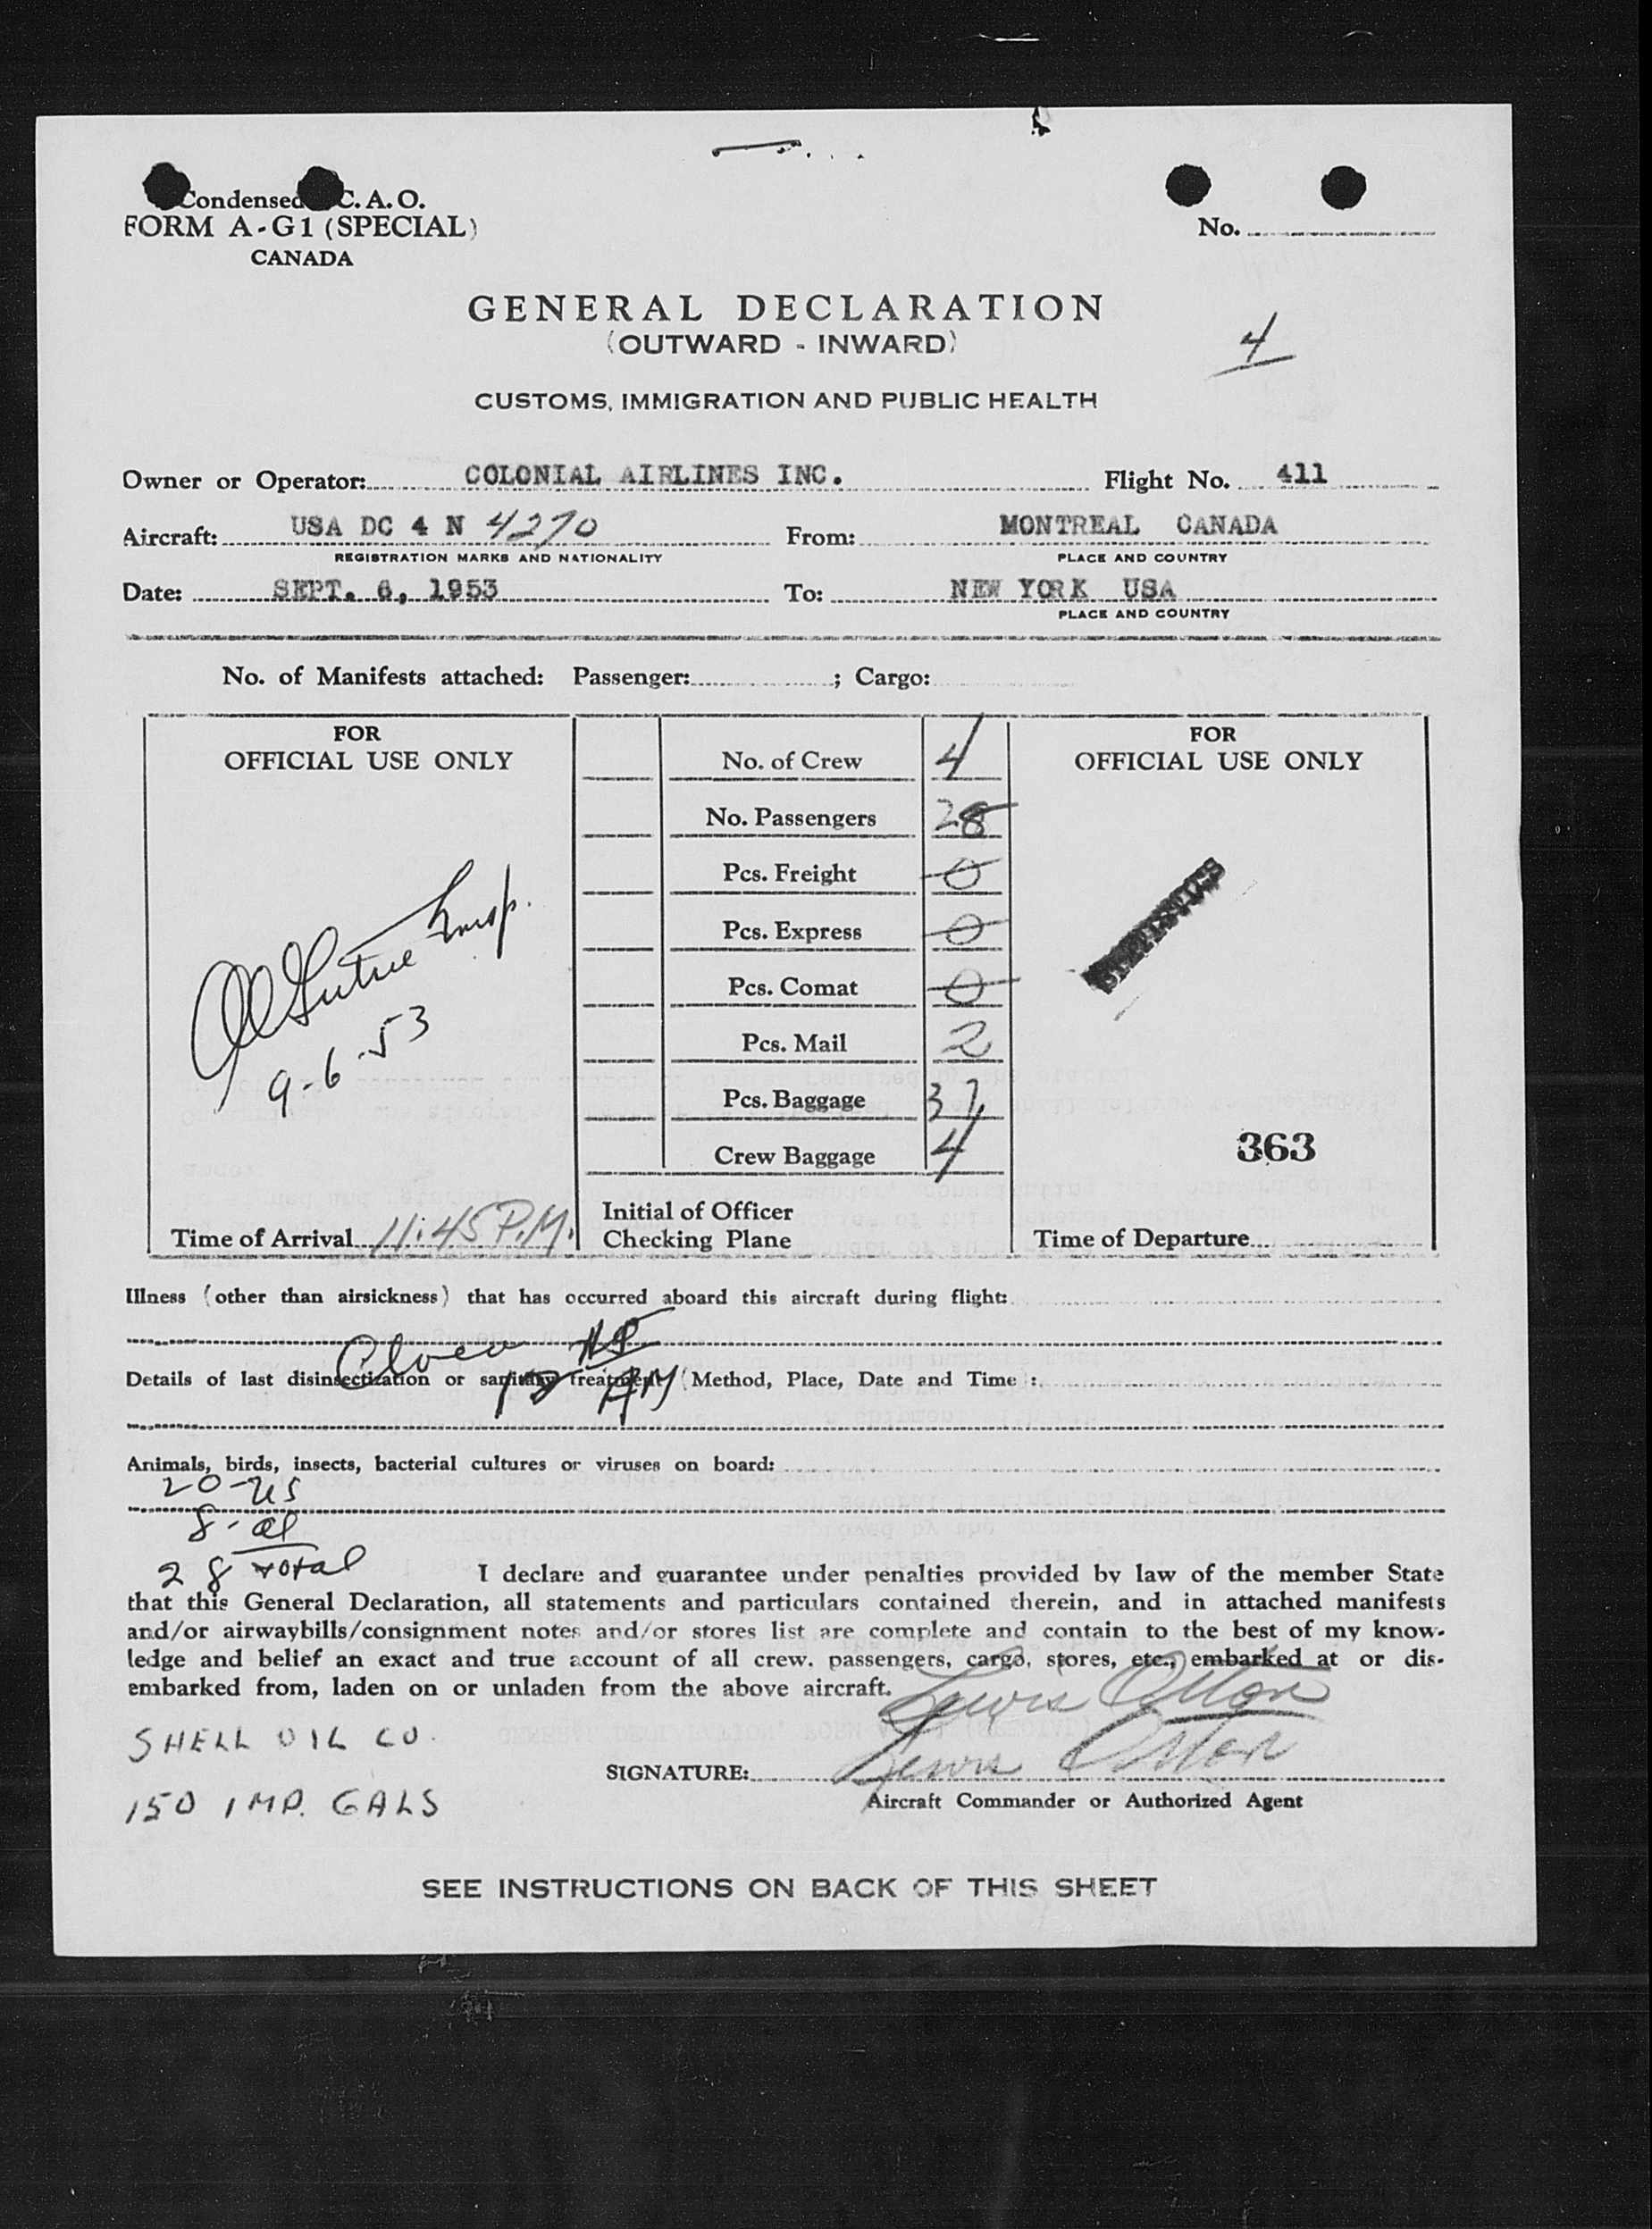 Condensed I.C.A.O.
FORM A-G1 (SPECIAL)
CANADA
No.
GENERAL DECLARATION
(OUTWARD - INWARD)
4
CUSTOMS, IMMIGRATION AND PUBLIC HEALTH
Owner or Operator: COLONIAL AIRLINES INC. Flight No. 411
Aircraft: USA DC 4 N 4270 From: MONTREAL CANADA
REGISTRATION MARKS AND NATIONALITY PLACE AND COUNTRY
Date: SEPT. 6, 1953 To: NEW YORK USA
PLACE AND COUNTRY
No. of Manifests attached: Passenger: ; Cargo:
FOR
OFFICIAL USE ONLY
Insp.
9-6-53
Time of Arrival 11:45 P.M.
No. of Crew 4
No. Passengers 28
Pcs. Freight 0
Pcs. Express 0
Pcs. Comat 0
Pcs. Mail 2
Pcs. Baggage 37
Crew Baggage 4
Initial of Officer
Checking Plane
FOR
OFFICIAL USE ONLY
STATISTICS
363
Time of Departure
Illness (other than airsickness) that has occurred aboard this aircraft during flight:
Details of last disinsectization or sanitary treatment (Method, Place, Date and Time):
12 AM
Animals, birds, insects, bacterial cultures or viruses on board:
20-US
8-al
28 total
I declare and guarantee under penalties provided by law of the member State
that this General Declaration, all statements and particulars contained therein, and in attached manifests
and/or airwaybills/consignment notes and/or stores list are complete and contain to the best of my know-
ledge and belief an exact and true account of all crew, passengers, cargo, stores, etc., embarked at or dis-
embarked from, laden on or unladen from the above aircraft.
Lewis
SHELL OIL CO.
SIGNATURE: Lewis
150 IMP. GALS
Aircraft Commander or Authorized Agent
SEE INSTRUCTIONS ON BACK OF THIS SHEET